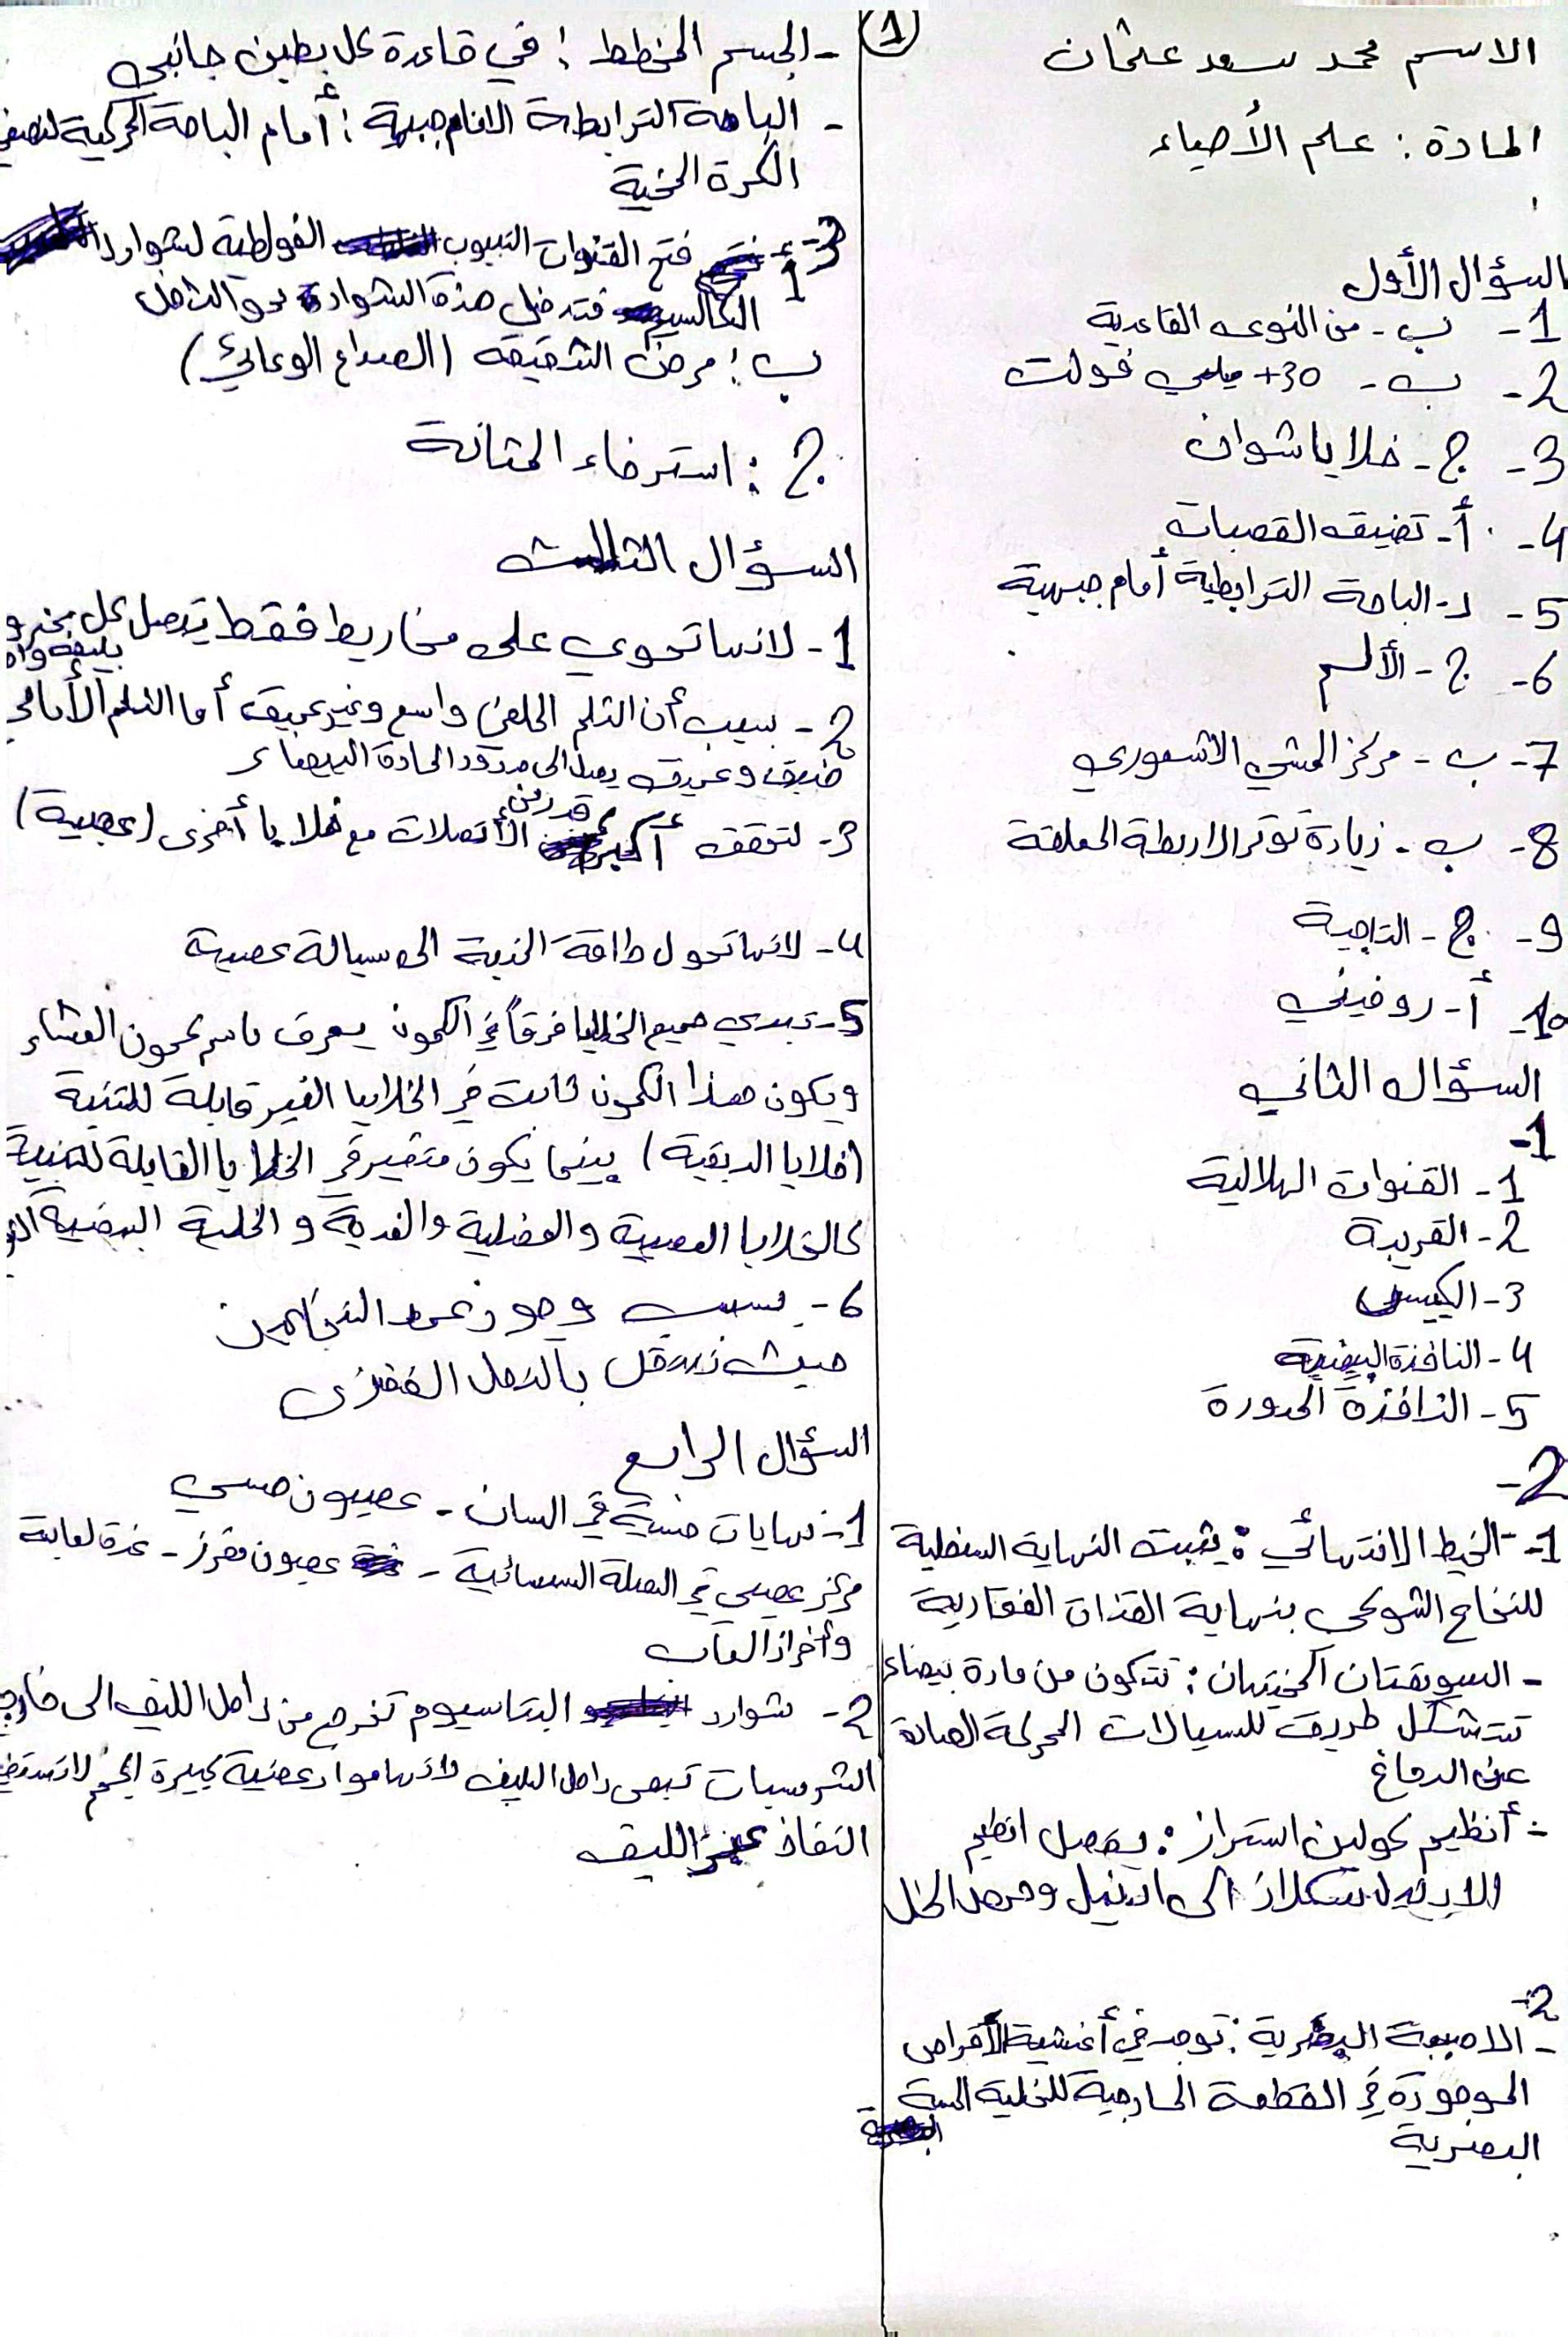 1
الاسم محمد سعد عثمان
المادة : علم الأحياء
السؤال الأول
1- ب - من النوى القاعدية
2- ب - 30+ ميلي فولت
3- ج - خلايا شوان
4- أ - تضيق القصبات
5- د - الباحة الترابطية أمام جبهية
6- ج - الألم
7- ب - مركز المشي الاشعوري
8- ب - زيادة توتر الاربطة المعلقة
9- ج - التاجية
10- أ - روفيني
السؤال الثاني
1-
1- القنوات الهلالية
2- القريبة
3- الكييس
4- النافذة البيضية
5- النافذة المدورة
2-
1- - الخيط الانتهائي : يثبت النهاية السفلية
للنخاع الشوكي بنهاية القناة الفقارية
- السويقتان المخيتان : تتكون من مادة بيضاء
تتشكل طريق للسيالات المحركة الصادة
عن الدماغ
- أنظيم كولين استراز : يفصل انظيم
الاستيل وحمض الخل
2-
- الاصبغة البصرية : توجد في أغشية الأقراص
الموجودة في القطعة الخارجية للخلية الحسية
البصرية
- الجسم المخطط : في قاعدة كل بطين جانبي
- الباحة الترابطية الامام جبهية : أمام الباحة الحركية لنصفي
الكرة المخية
3- 1 فتح القنوات التبويب الفولطية لشوارد
الكالسيوم فتدخل هذه الشوارد نحو الداخل
ب : مرض الشقيقة (الصداع الوعائي)
ج : استرخاء المثانة
السؤال الثالث
1- لانها تحوي على مخاريط فقط يتصل كل مخروط
بليفة
2- بسبب أن الثلم الخلفي واسع وغير عميق أما الثلم الأمامي
ضيق وعميق يصل الى حدود المادة البيضاء
3- لتحقق أكبر قدر من الأتصلات مع خلايا أخرى (عصبية)
4- لانها تحول طاقة المنبه الى سيالة عصبية
5- تبدي جميع الخلايا فرقاً في الكمون يعرف باسم كمون الغشاء
ويكون هذا الكمون ثابت في الخلايا الغير قابلة للتنبيه
(خلايا الدبقية) بينما يكون متغير في الخلايا القابلة للتنبيه
كالخلايا العصبية والعضلية والغدية و الخلية البيضية
6- بسبب وجود غمد النخاعين
حيث تنتقل بالنقل القفزى
السؤال الرابع
1- نهايات حسية في السان - عصبون حسي
مركز عصبي في البصلة السيسائية - عصبون مفرز - غدة لعابية
وأفراز العاب
2- شوارد البتاسيوم تخرج من داخل الليف الى خارج
الشرسبات تبقى داخل الليف لانها مواد عضوية كبيرة الحجم لا تستطيع
النفاذ عبر الليف